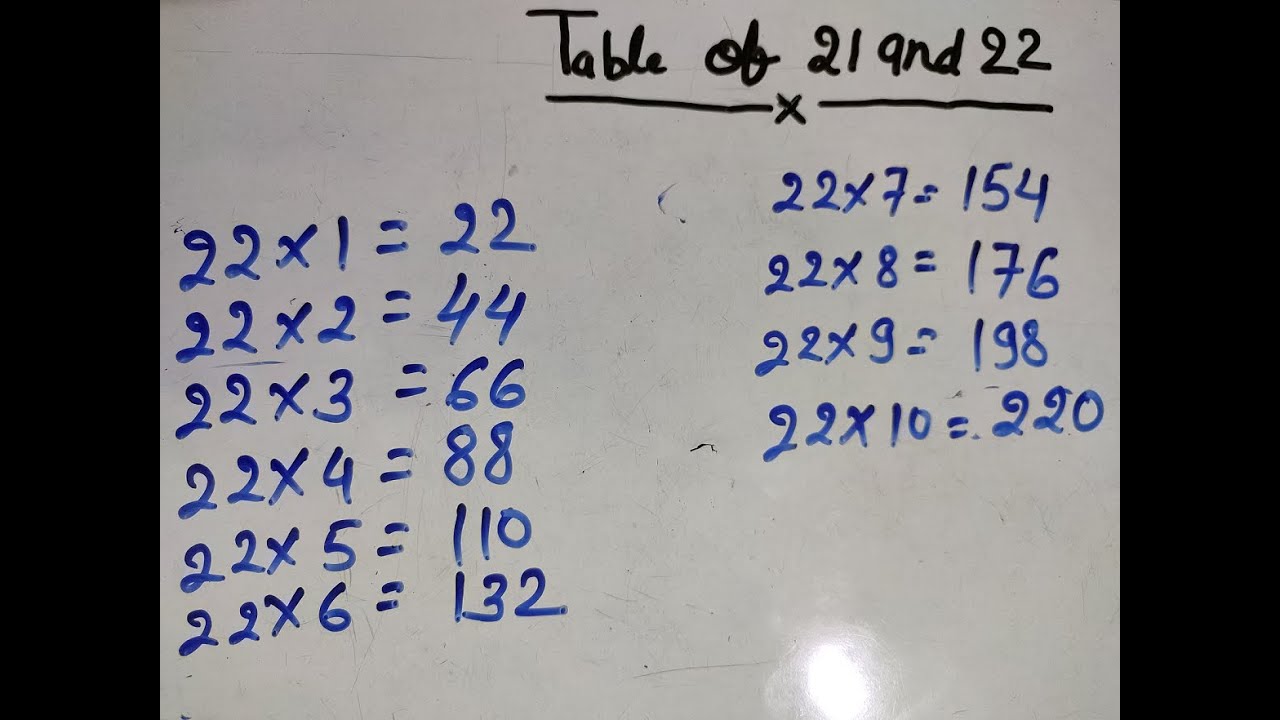 Table of 21 and 22
x
22x1 = 22
22x2 = 44
22x3 = 66
22x4 = 88
22x5 = 110
22x6 = 132
22x7= 154
22x8= 176
22x9= 198
22x10= 220